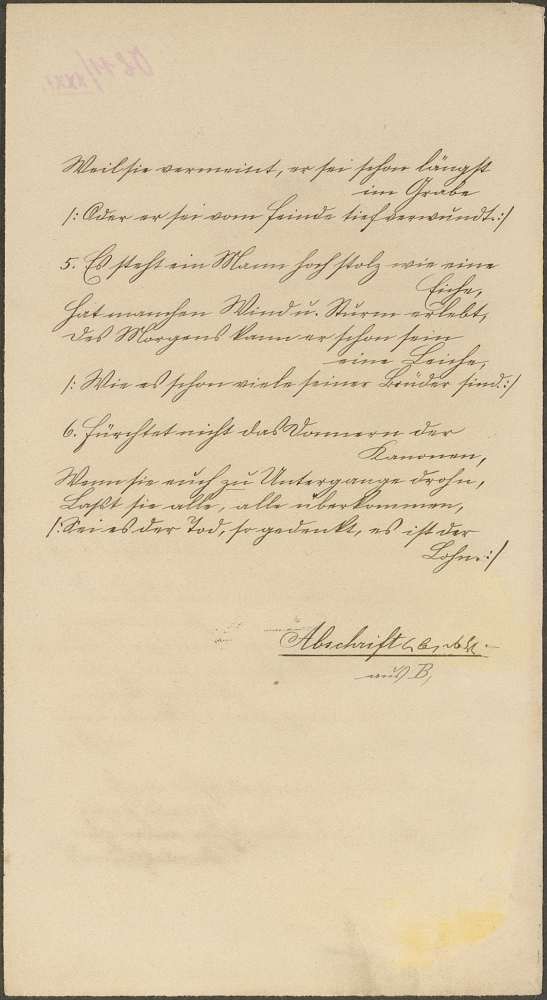 Weil sie vermeint, er sei schon längst
im Grabe
/: Oder er sei vom Feinde tief verwundt. :/
5. Es steht ein Mann hoch stolz wie eine
Eiche,
Hat manchen Wind u. Sturm erlebt,
Des Morgens kann er schon sein
eine Leiche,
/: Wie es schon viele seiner Brüder sind. :/
6. Fürchtet nicht das Donnern der
Kanonen,
Wenn sie euch zu Untergange drohn,
Laßt sie alle, alle überkommen,
/: Sei es der Tod, so gedenkt, es ist der
Lohn. :/
Abschrift
aus B,